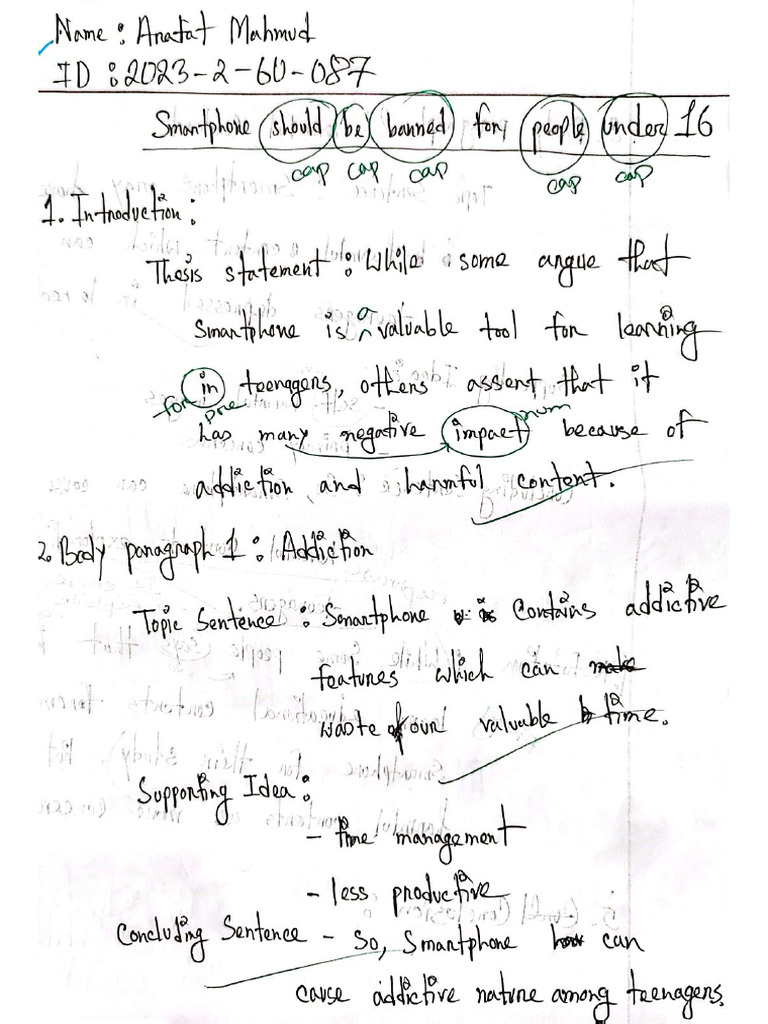 Name : Arafat Mahmud
ID : 2023-2-60-087
Smartphone should be banned for people under 16
cap cap cap cap cap
1. Introduction :
Thesis statement : While some argue that
Smartphone is a valuable tool for learning
in teenagers, others assert that it
for pre num
has many negative impact because of
addiction, and harmful content.
2. Body paragraph 1 : Addiction
Topic Sentence : Smartphone is contains addictive
features which can make
waste of our valuable time.
Supporting Idea :
- time management
- less productive
Concluding Sentence - So, Smartphone can
cause addictive nature among teenagers.